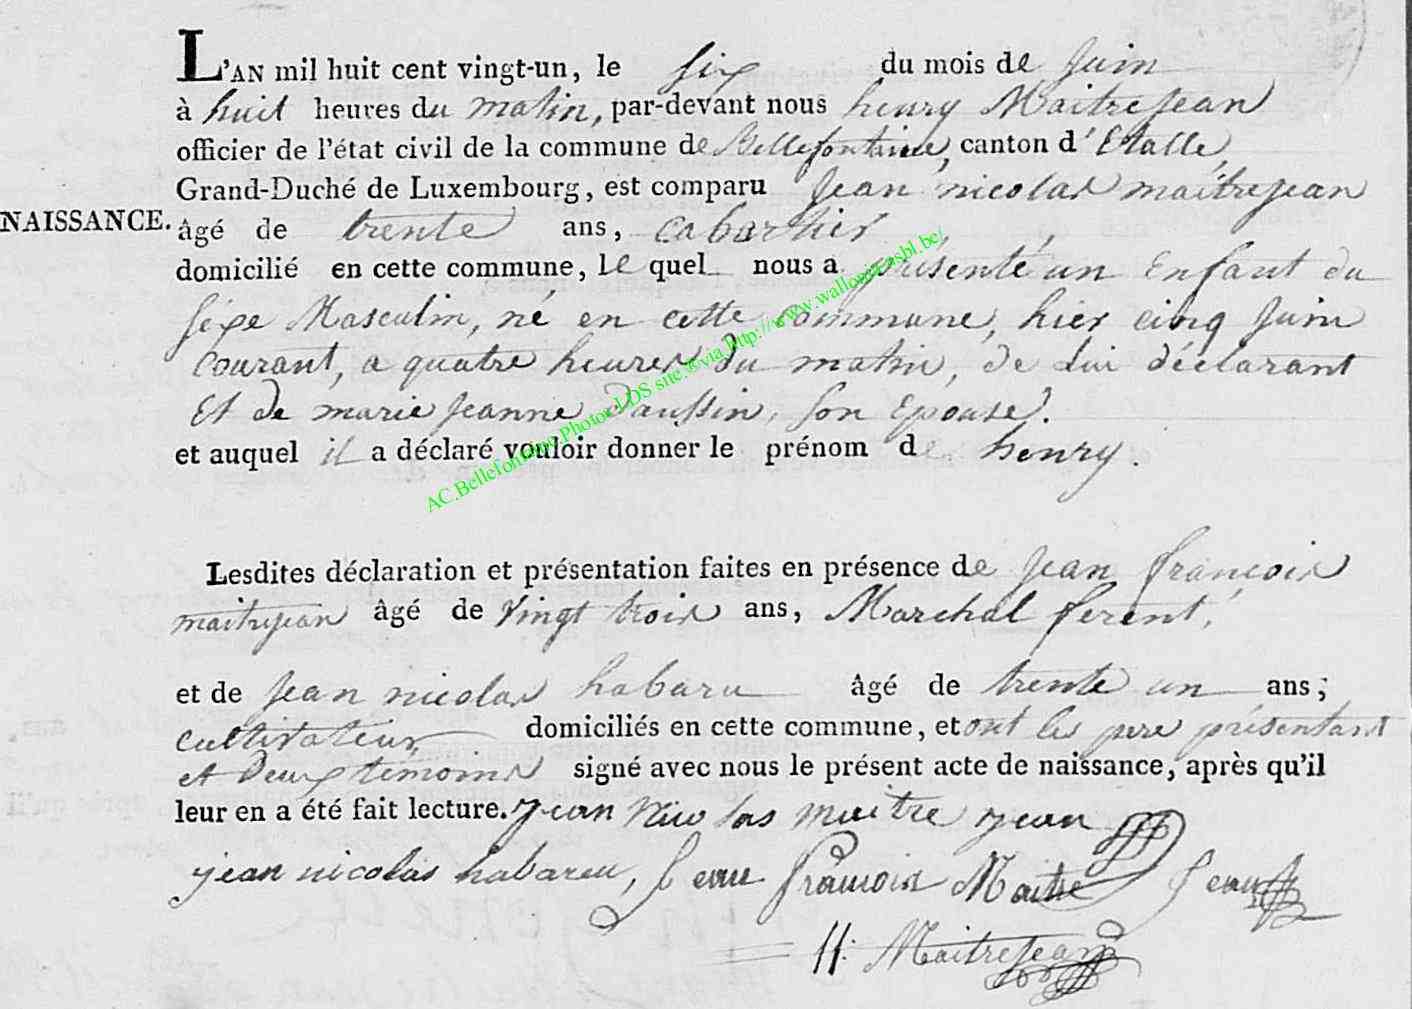 L'AN mil huit cent vingt-un, le six du mois de Juin
à huit heures du matin, par-devant nous henry Maitrejean
officier de l'état civil de la commune de Bellefontaine, canton d'Etalle,
Grand-Duché de Luxembourg, est comparu Jean nicolas maitrejean
NAISSANCE. âgé de trente ans, cabartier
domicilié en cette commune, le quel nous a présenté un Enfant du
séxe Masculin, né en cette commune, hier cinq Juin
courant, a quatre heures du matin, de Lui déclarant
Et de marie Jeanne Daussin, son Epouse.
et auquel il a déclaré vouloir donner le prénom de henry.
AC.Bellefontaine.Photos LDS site.®via http://www.wallonia-asbl.be/
Lesdites déclaration et présentation faites en présence de Jean françois
maitrejean âgé de vingt trois ans, Marchal ferent,
et de Jean nicolas habaru âgé de trente un ans;
cultivateur, domiciliés en cette commune, et ont les pere présentant
et Deux temoins signé avec nous le présent acte de naissance, après qu'il
leur en a été fait lecture. jean Nicolas maitre jean
jean nicolas habaru, Jean françois Maitre Jean
H. MaitreJean